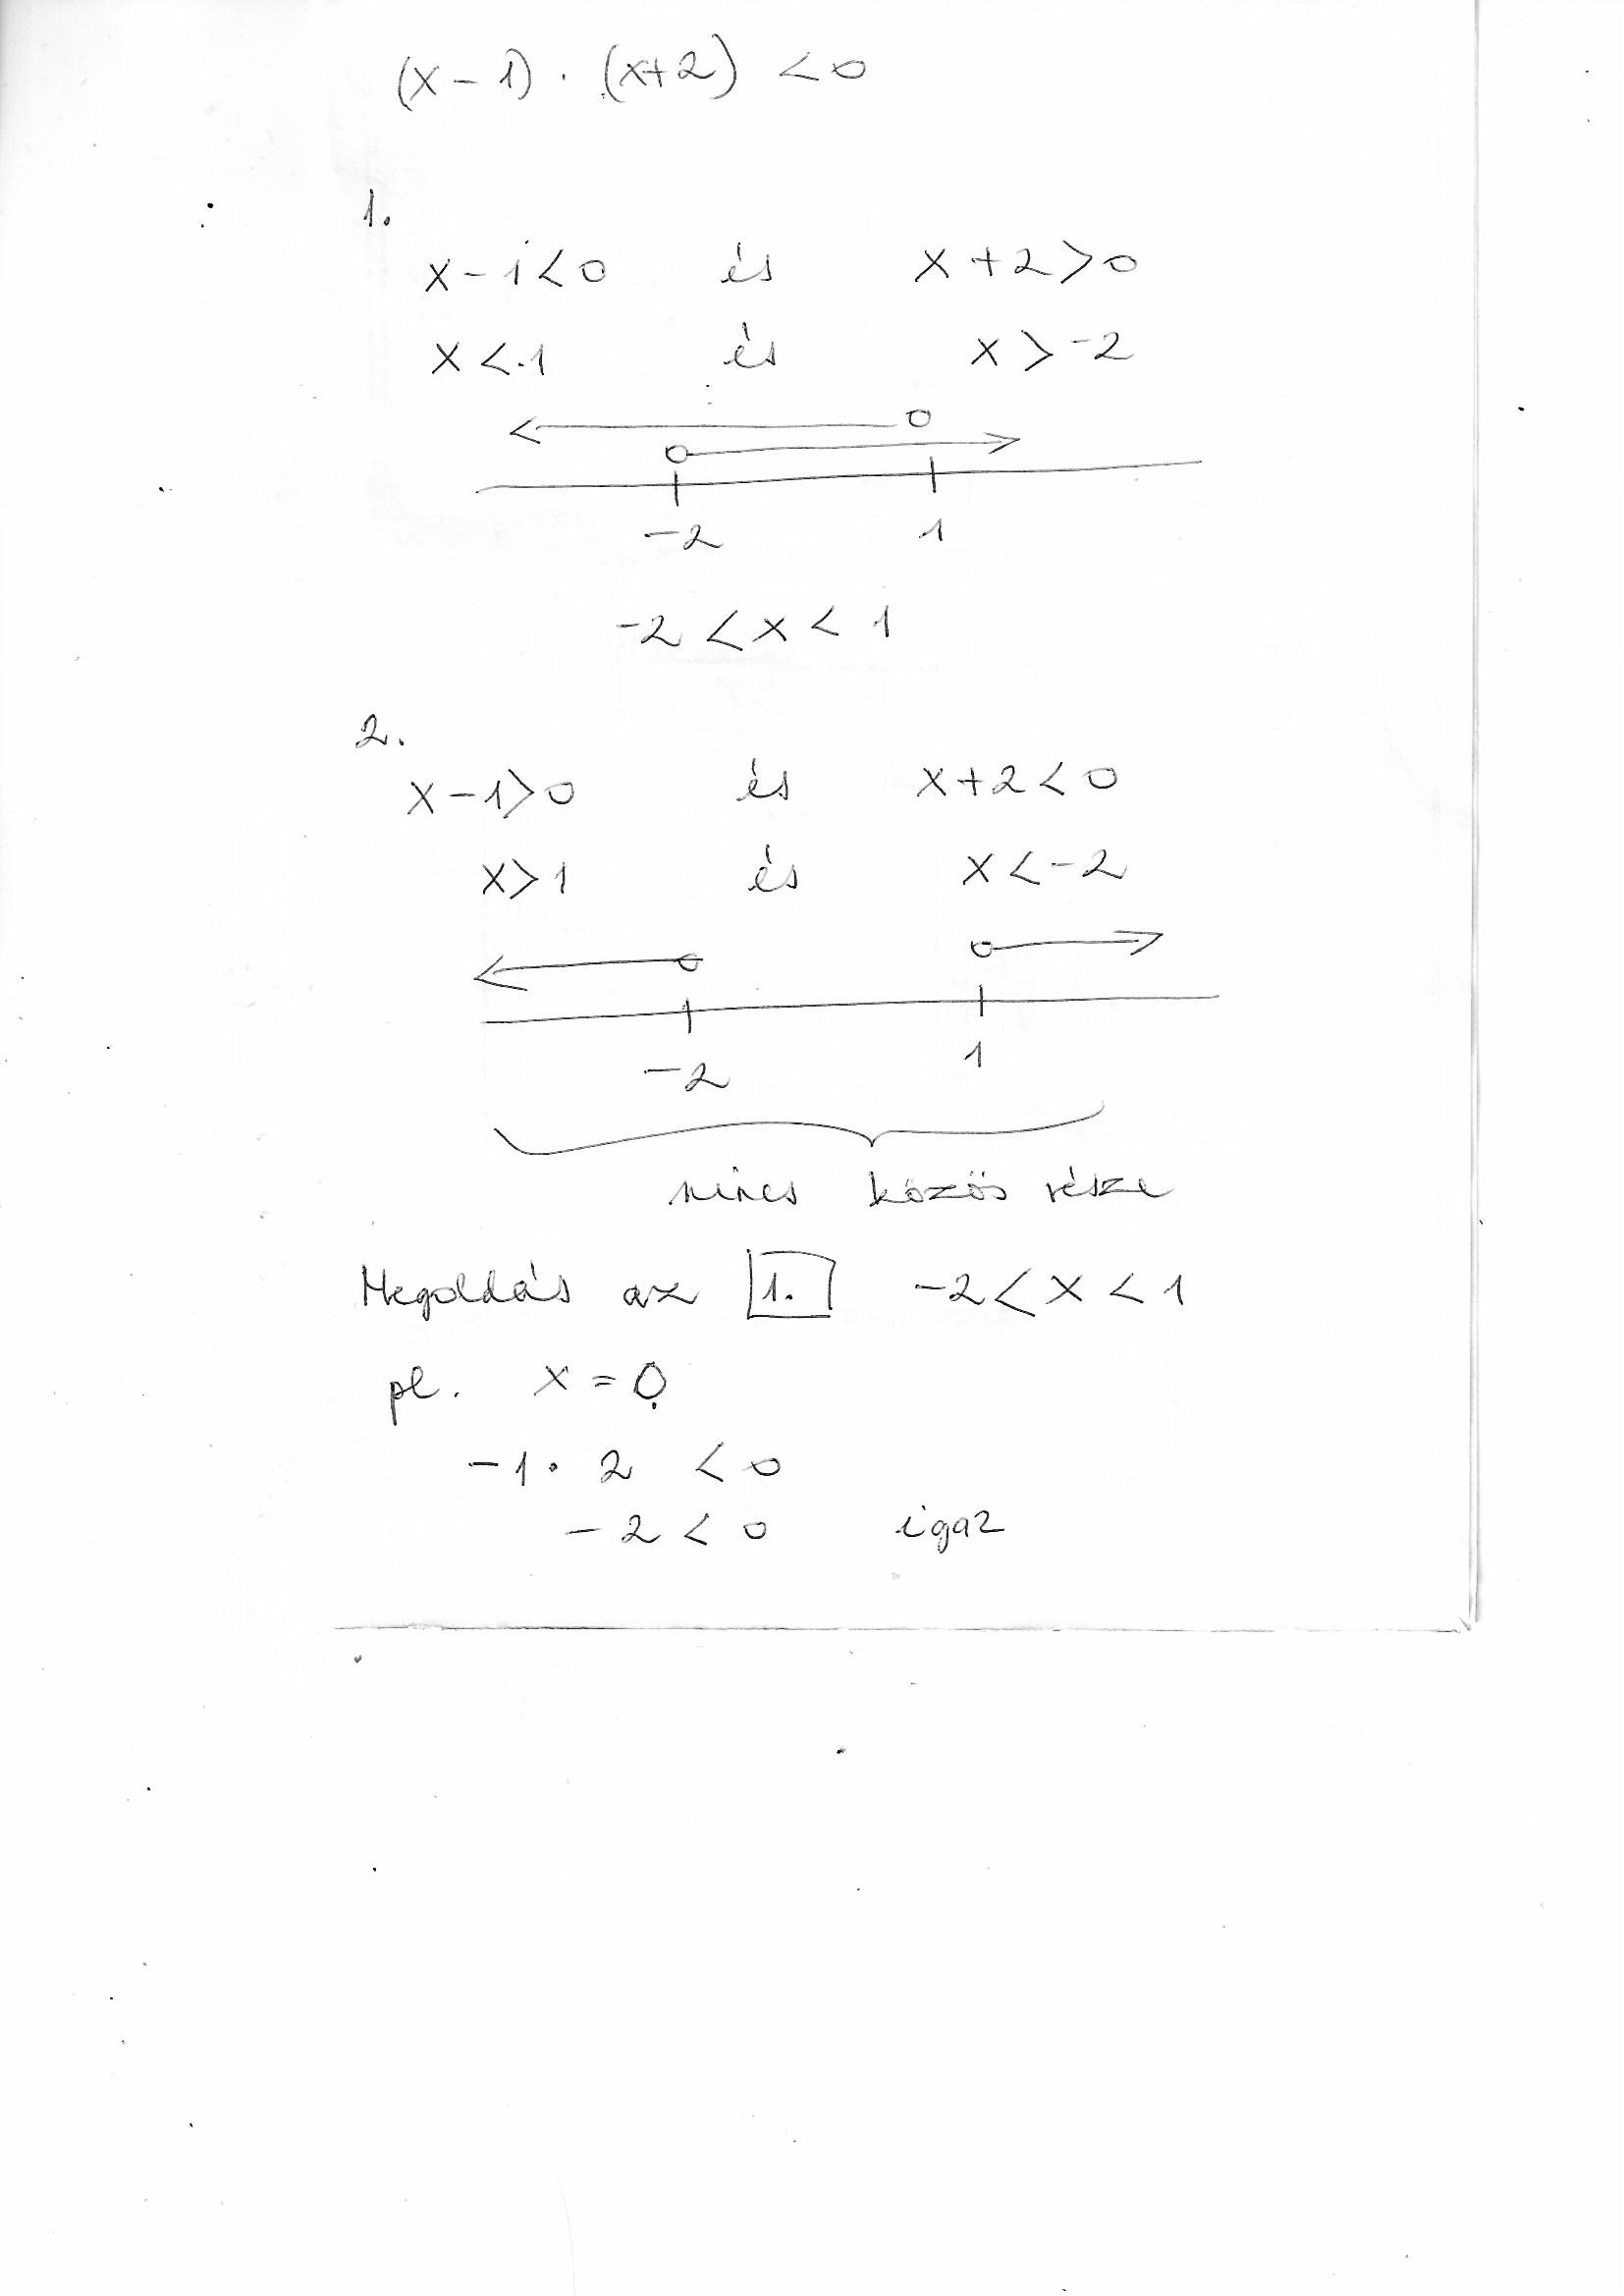 (x-1)·(x+2) <0
1.
x-1<0 és x+2>0
x<1 és x>-2
-2 1
-2<x<1
2.
x-1>0 és x+2<0
x>1 és x<-2
-2 1
nincs közös része
Megoldás az 1. -2<x<1
pl. x=0
-1·2 <0
-2<0 igaz